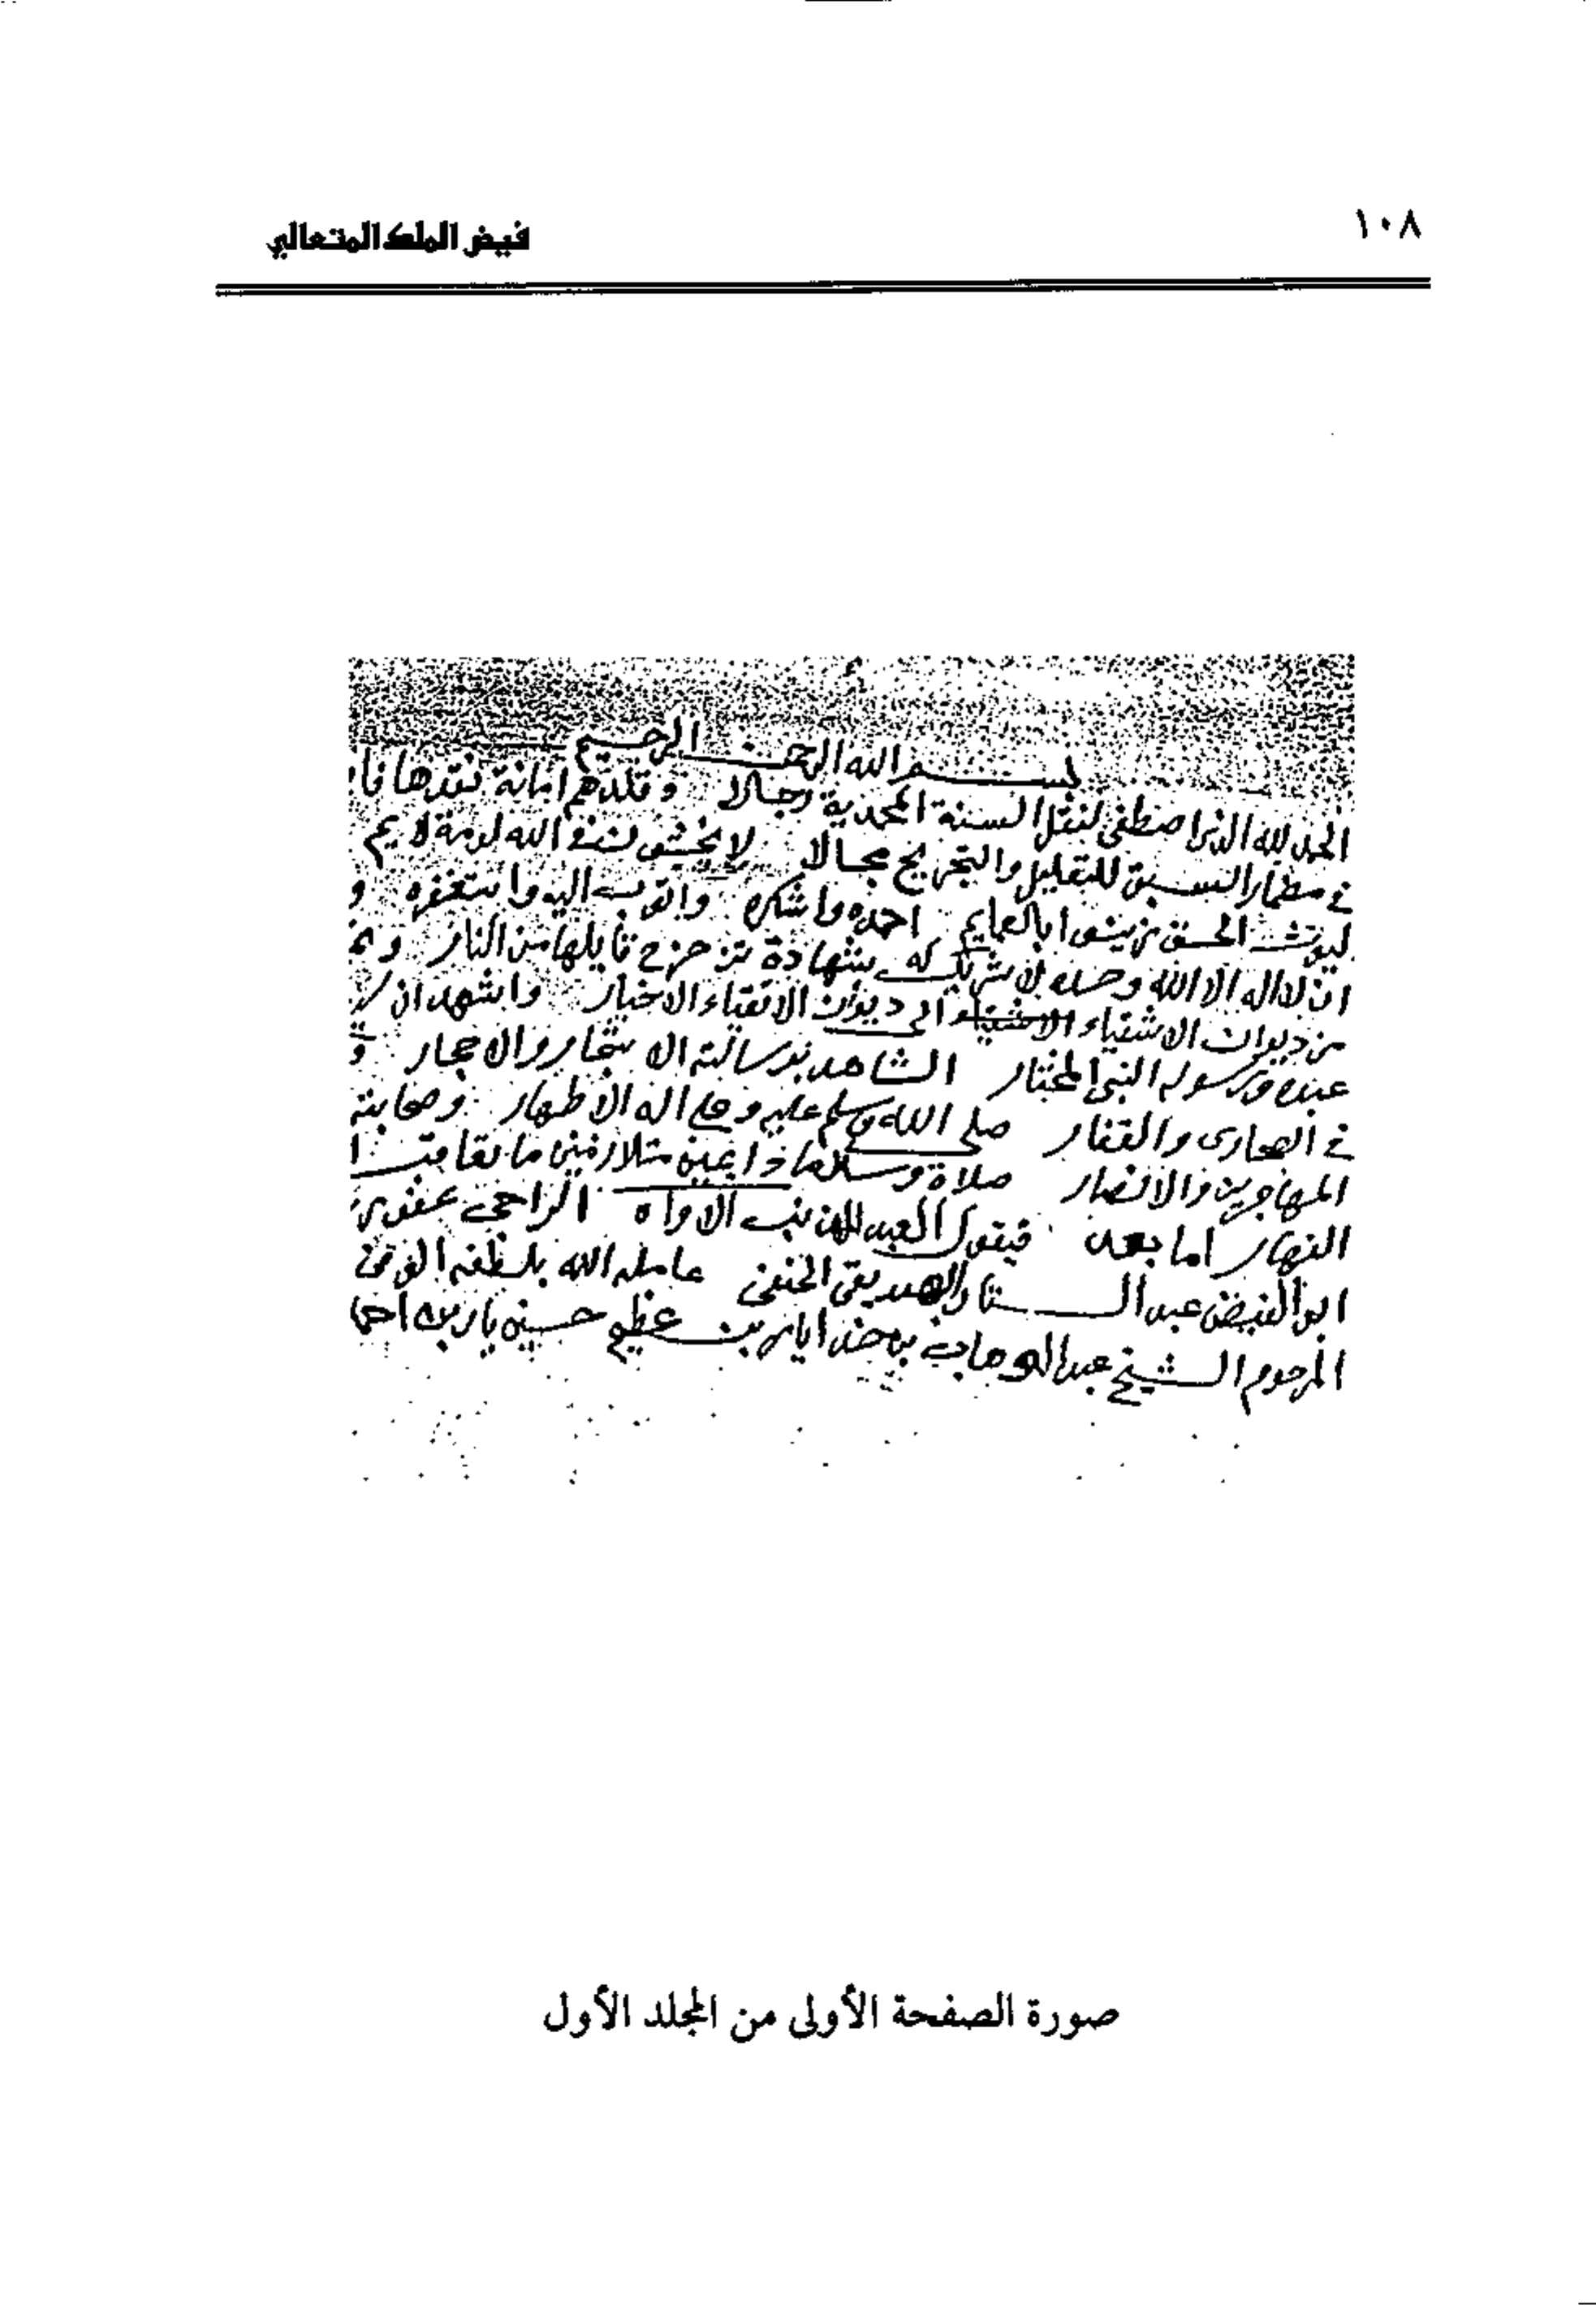 ١٠٨
فيض الملك المتعالي
بسم الله الرحمن الرحيم
الحمد لله الذي اصطفى لنقل السنة المحمدية رجالا وقلدهم امانة نقدها
في مضمار السبق للتعليل والتجريح مجالا لا يخشى في الله لومة لايم
ليوث الحق تزينوا بالعمايم احمده واشكره واتوب اليه واستغفره و
ان لا اله الا الله وحده لا شريك له شهادة تزحزح قايلها من النار
من ديوان الاشقياء الى ديوان الاتقياء الاخيار واشهد ان
عبده ورسوله النبي المختار الشاهد برسالته الاشجار والاحجار و
في الصحارى والقفار صلى الله وسلم عليه وعلى اله الاطهار وصحابته
المهاجرين والانصار صلاة وسلاما دايمين متلازمين ما تعاقب
النهار اما بعد فيقول العبد المذنب الاواه الراجي عفو
ابو الفيض عبد الستار الصديقي الحنفي عامله الله بلطفه
المرحوم الشيخ عبد الوهاب بن خدايار بن عظيم حسين يار بن
صورة الصفحة الأولى من المجلد الأول